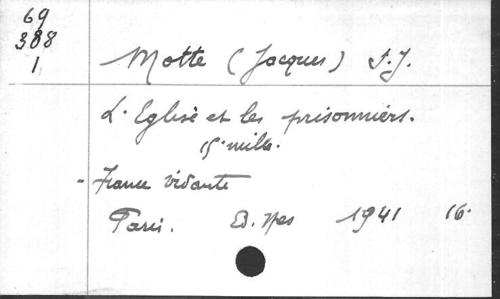 69
388
1
Motte (Jacques) S.J.
L'Eglise et les prisonniers.
15e mille.
- France vivante
Paris. Ed. Spes 1941 16.